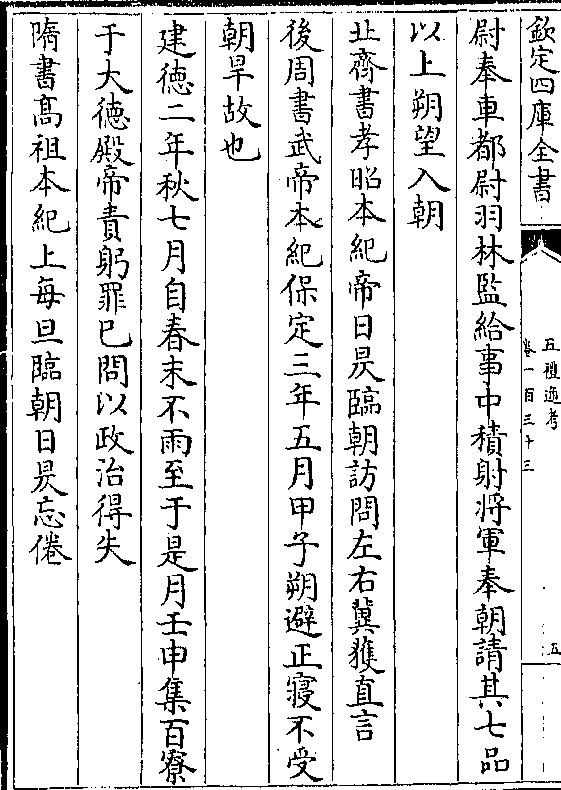 欽定四庫全書
五禮通考
卷一百三十三
五
尉奉車都尉羽林監給事中積射將軍奉朝請其七品
以上朔望入朝
北齊書孝昭本紀帝日昃臨朝訪問左右冀獲直言
後周書武帝本紀保定三年五月甲子朔避正寢不受
朝旱故也
建德二年秋七月自春末不雨至于是月壬申集百寮
于大德殿帝責躬罪己問以政治得失
隋書高祖本紀上每旦臨朝日昃忘倦